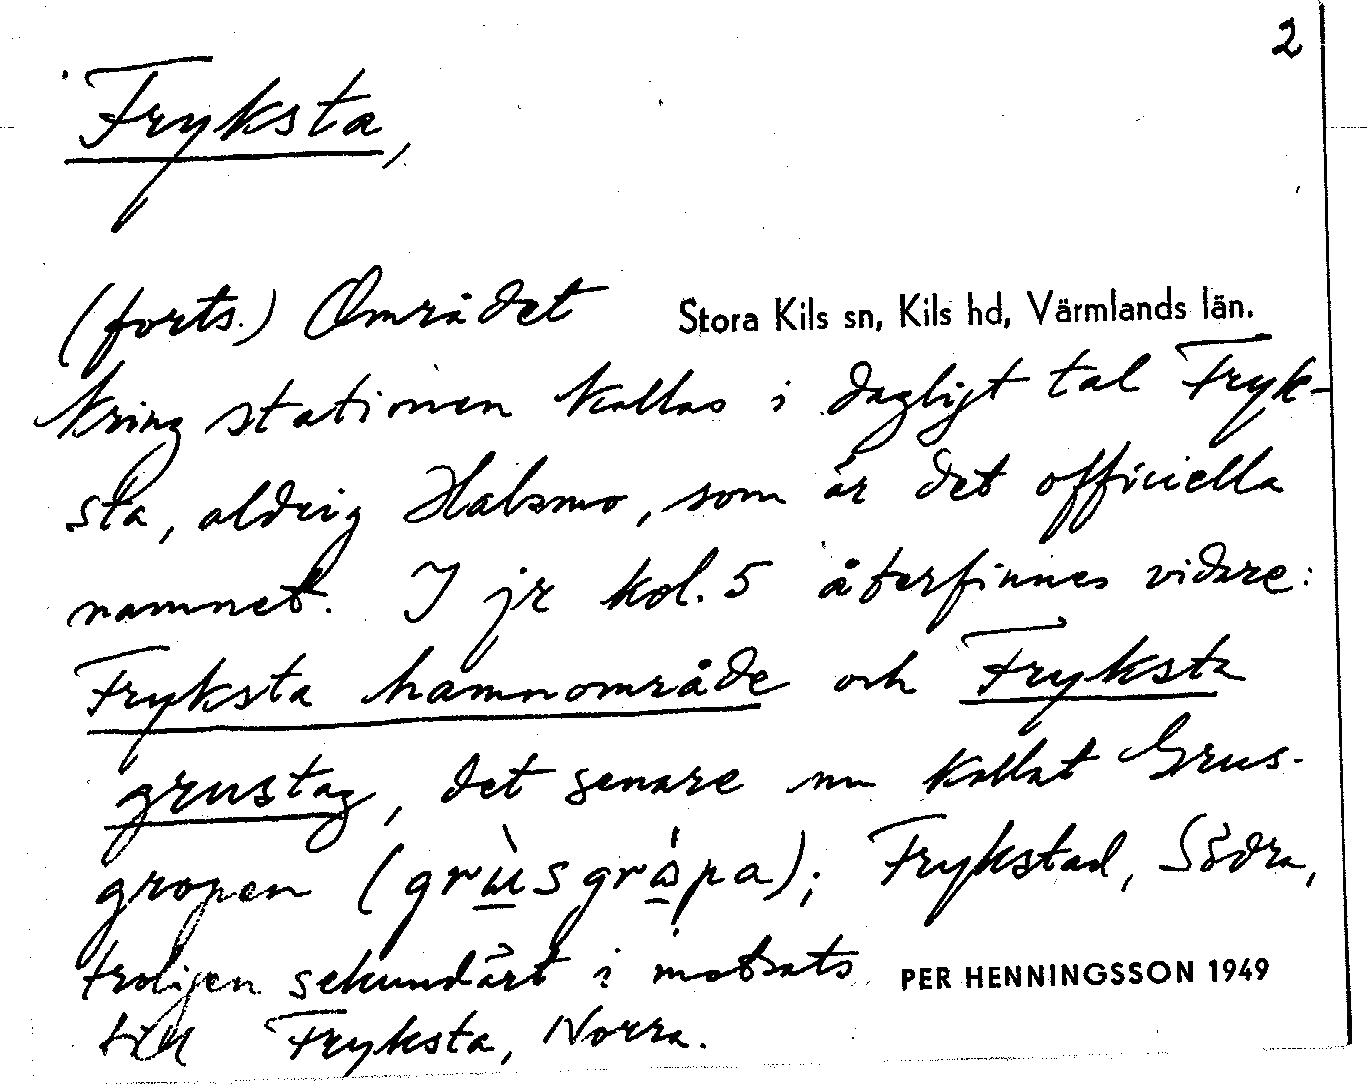 2
Fryksta,
(forts.) Området
Stora Kils sn, Kils hd, Värmlands län.
kring stationen kallas i dagligt tal Fryk-
sta, aldrig Halsmo, som är det officiella
namnet. I jr kol. 5 återfinnes vidare:
Fryksta hamnområde och Fryksta
grustag, det senare nu kallat Grus-
gropen (grùsgrópa); Frykstad, Södra,
troligen sekundärt i motsats
PER HENNINGSSON 1949
till Fryksta, Norra.